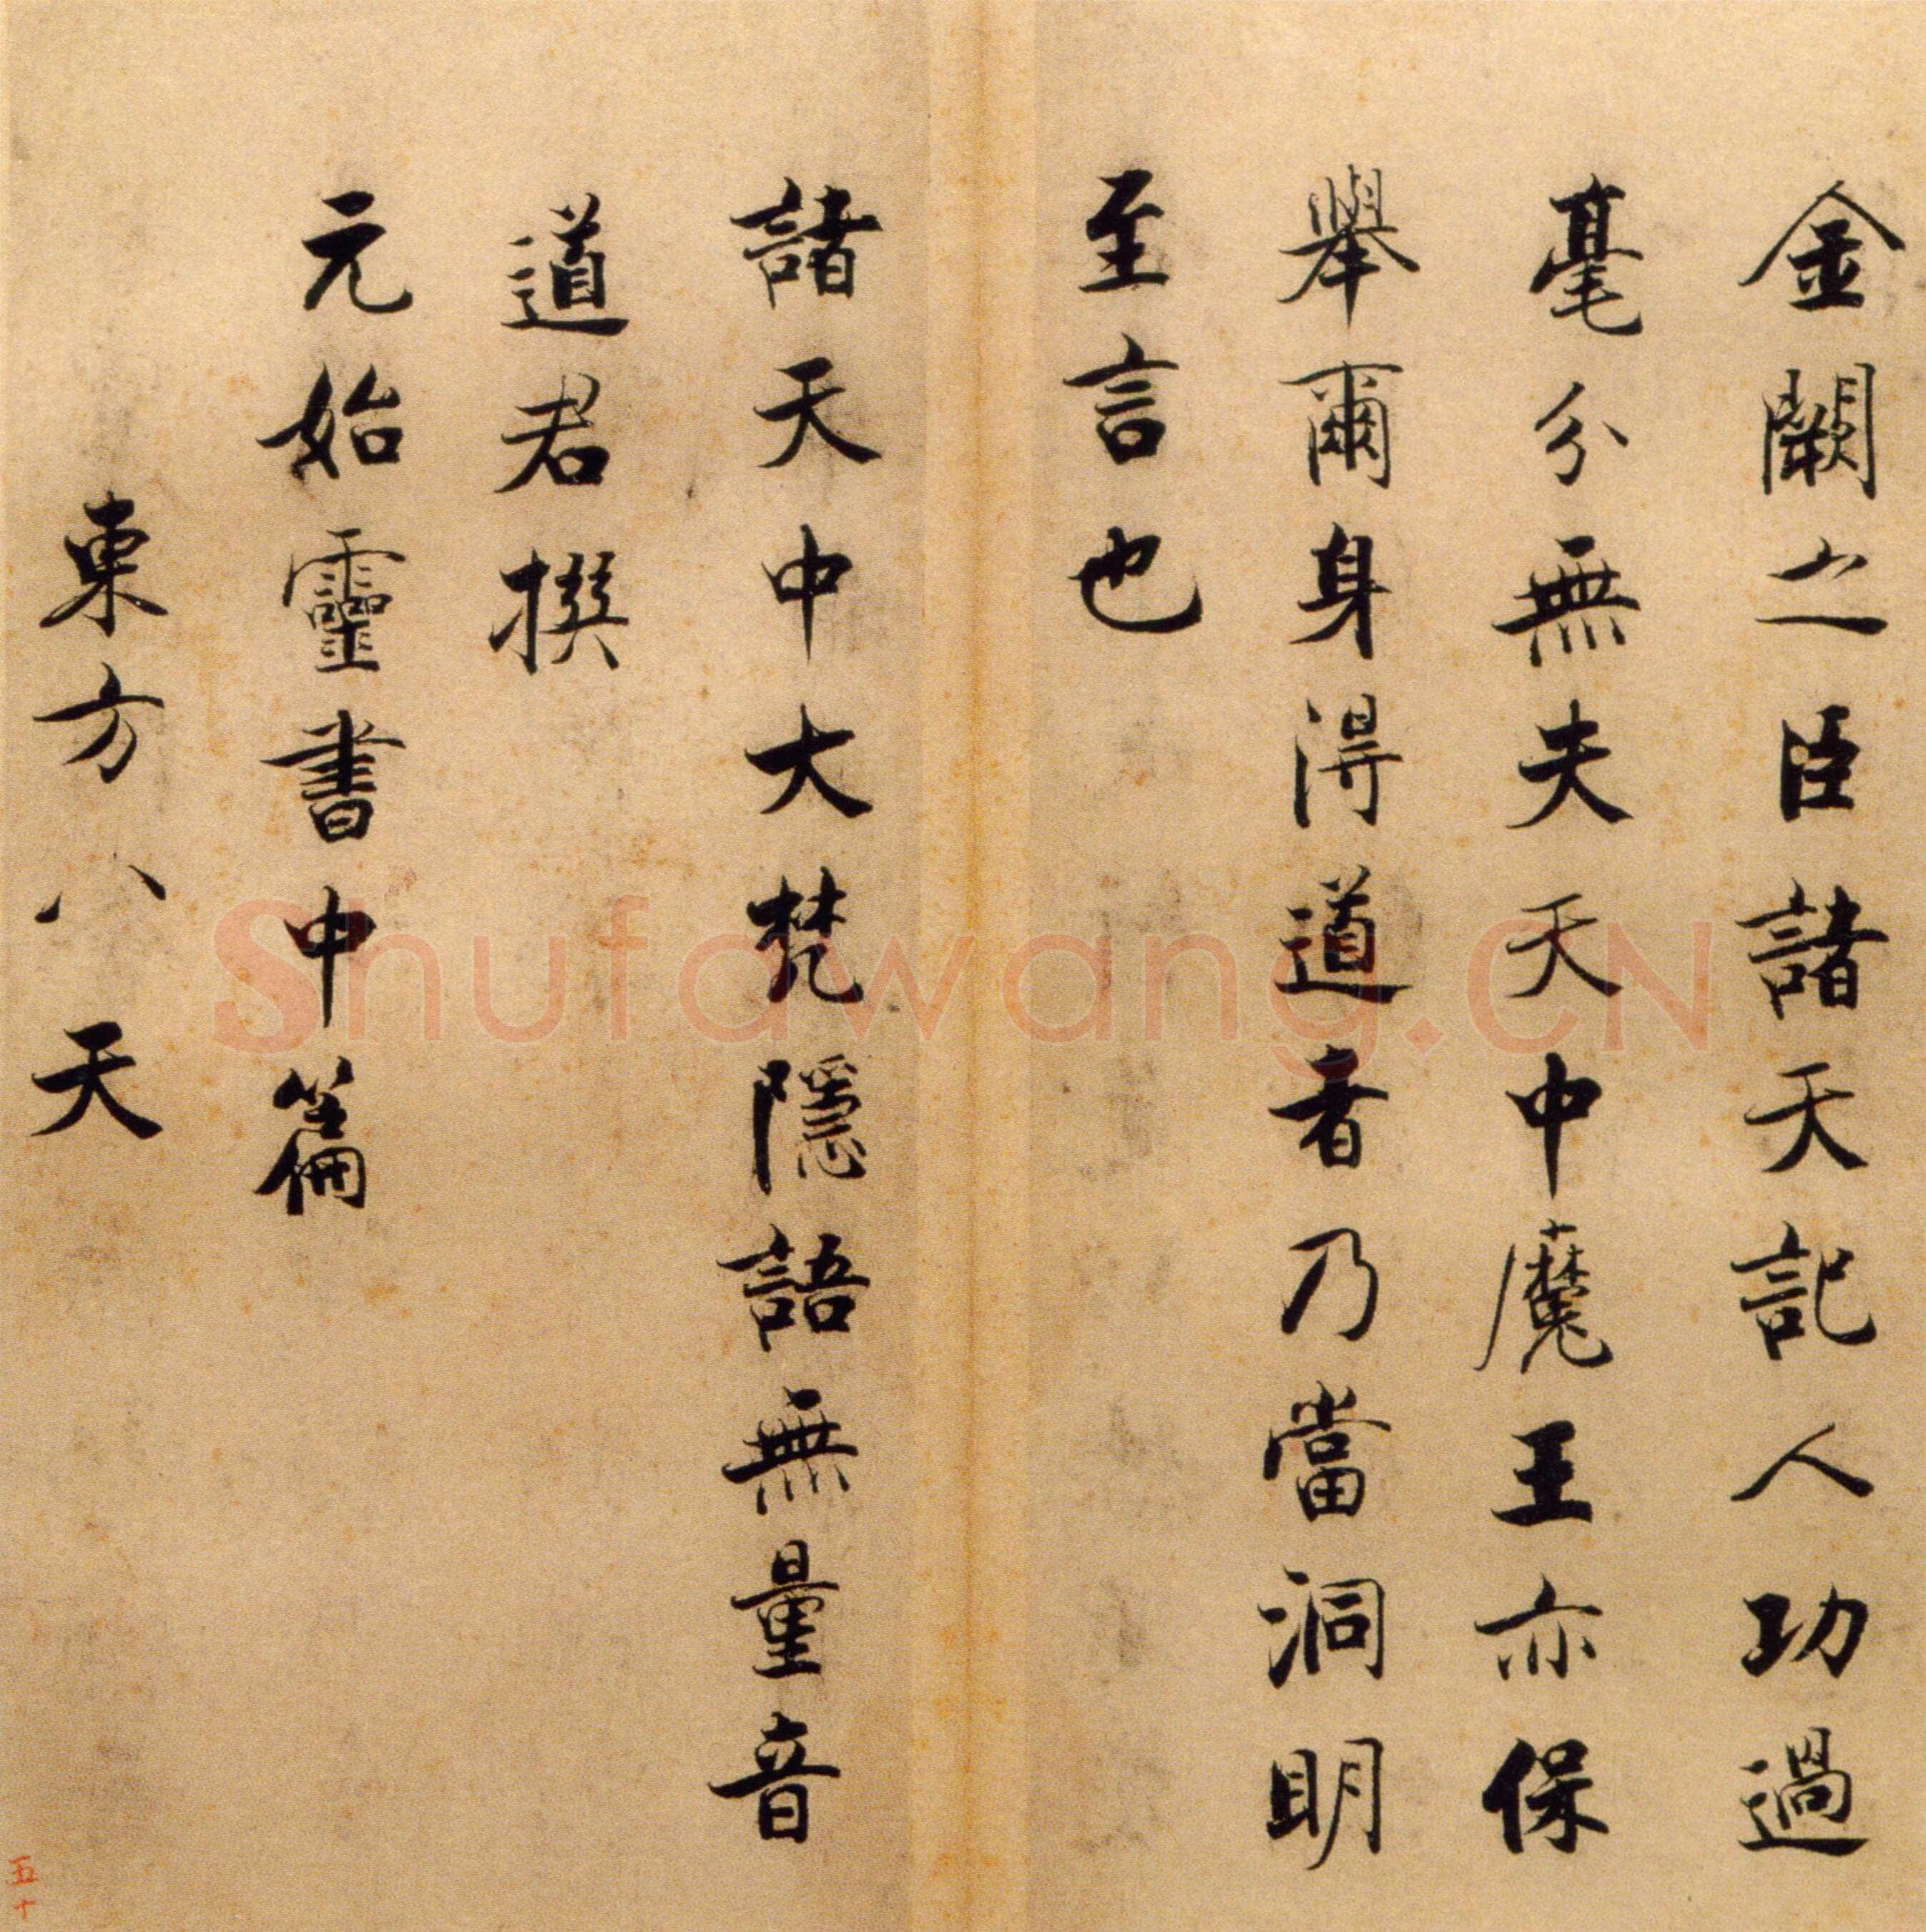 金闕之臣諸天記人功過
毫分無夫天中魔王亦保
舉爾身得道者乃當洞明
至言也
諸天中大梵隱語無量音
道君撰
元始靈書中篇
東方八天
五十
Shufawang.CN